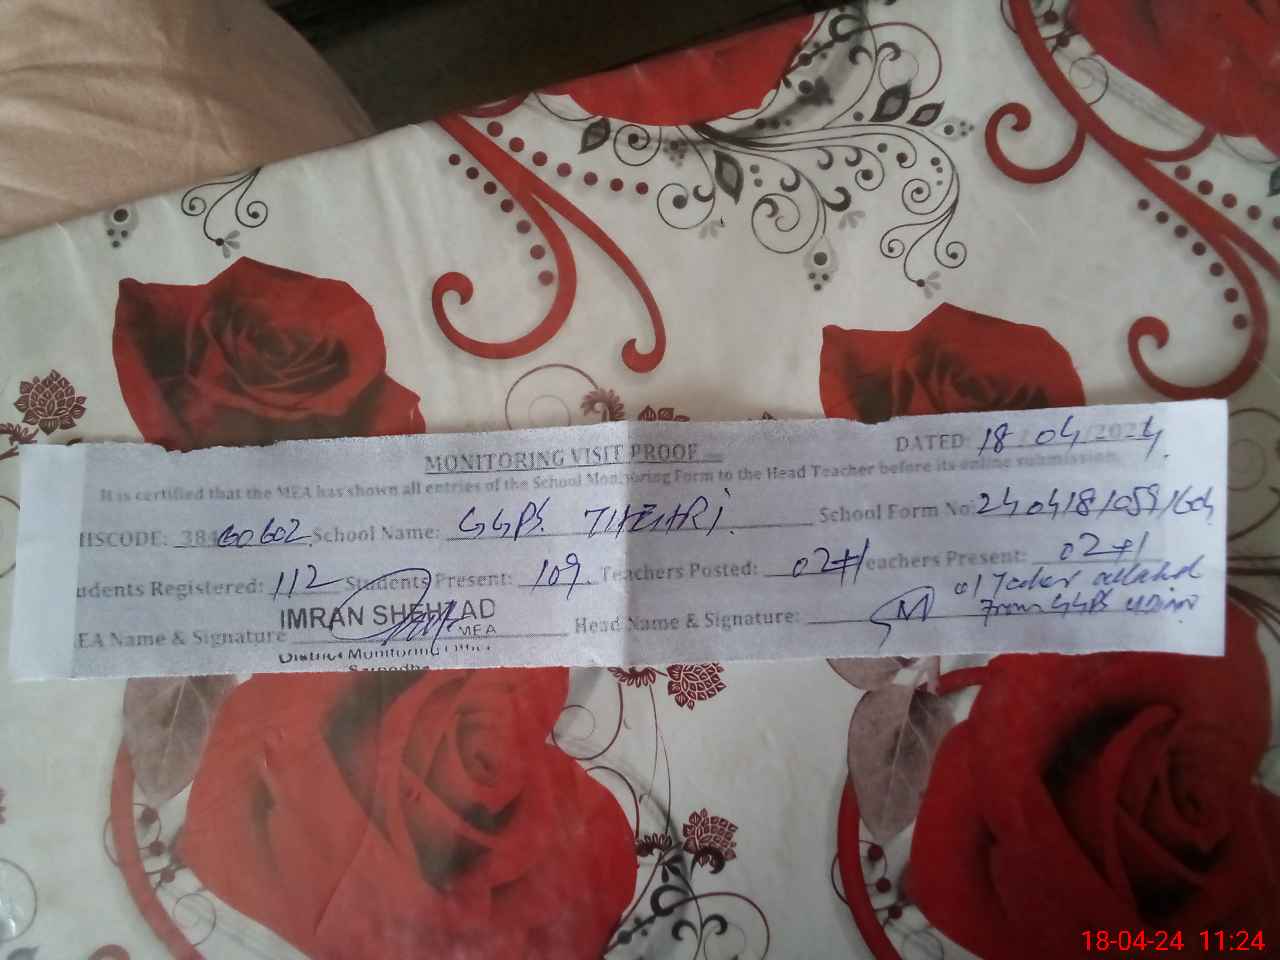 MONITORING VISIT PROOF DATED: 18/04/2024
It is certified that the MEA has shown all entries of the School Monitoring Form to the Head Teacher before its online submission.
HSCODE: 384 School Name: GGPS School Form No:
udents Registered: 112 Students Present: 109 Teachers Posted: 02+1 eachers Present: 02+1
01 Teacher
EA Name & Signature IMRAN SHEHZAD Head Name & Signature: from GGPS
MEA
District Monitoring Office
Sargodha
18-04-24 11:24